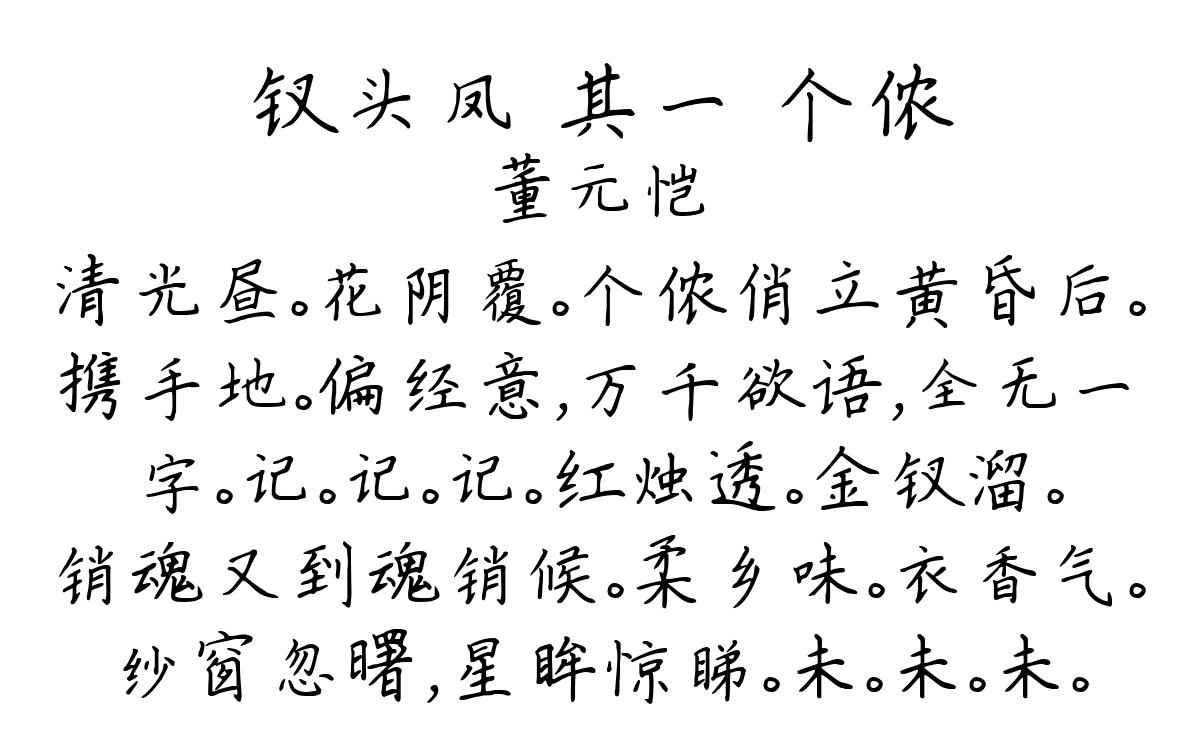 钗头凤 其一 个侬
董元恺
清光昼。花阴覆。个侬俏立黄昏后。
携手地。偏经意,万千欲语,全无一
字。记。记。记。红烛透。金钗溜。
销魂又到魂销候。柔乡味。衣香气。
纱窗忽曙,星眸惊睇。未。未。未。